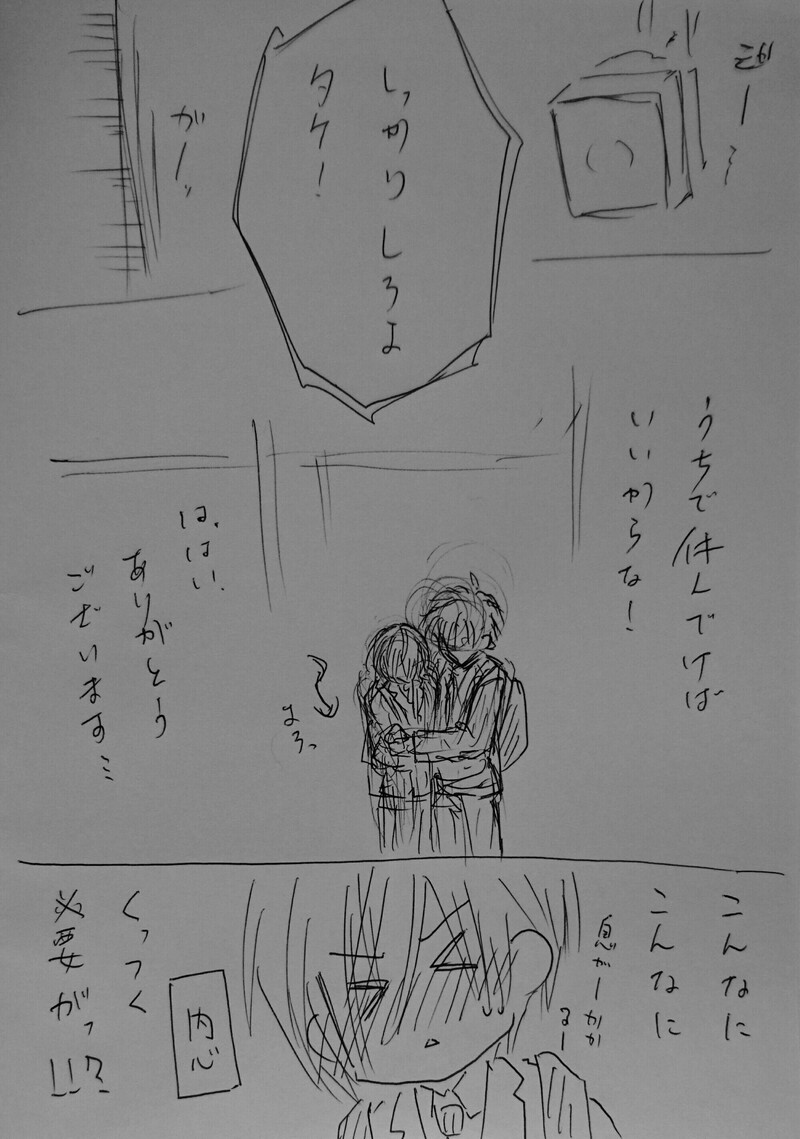 しっかりしろよ
タケ！
がーッ
うちで休んでけば
いいからな！
は、はい、
ありがとう
ございます…
こんなに
こんなに
息がーかか
るー
くっつく
必要がっ!!?
内心